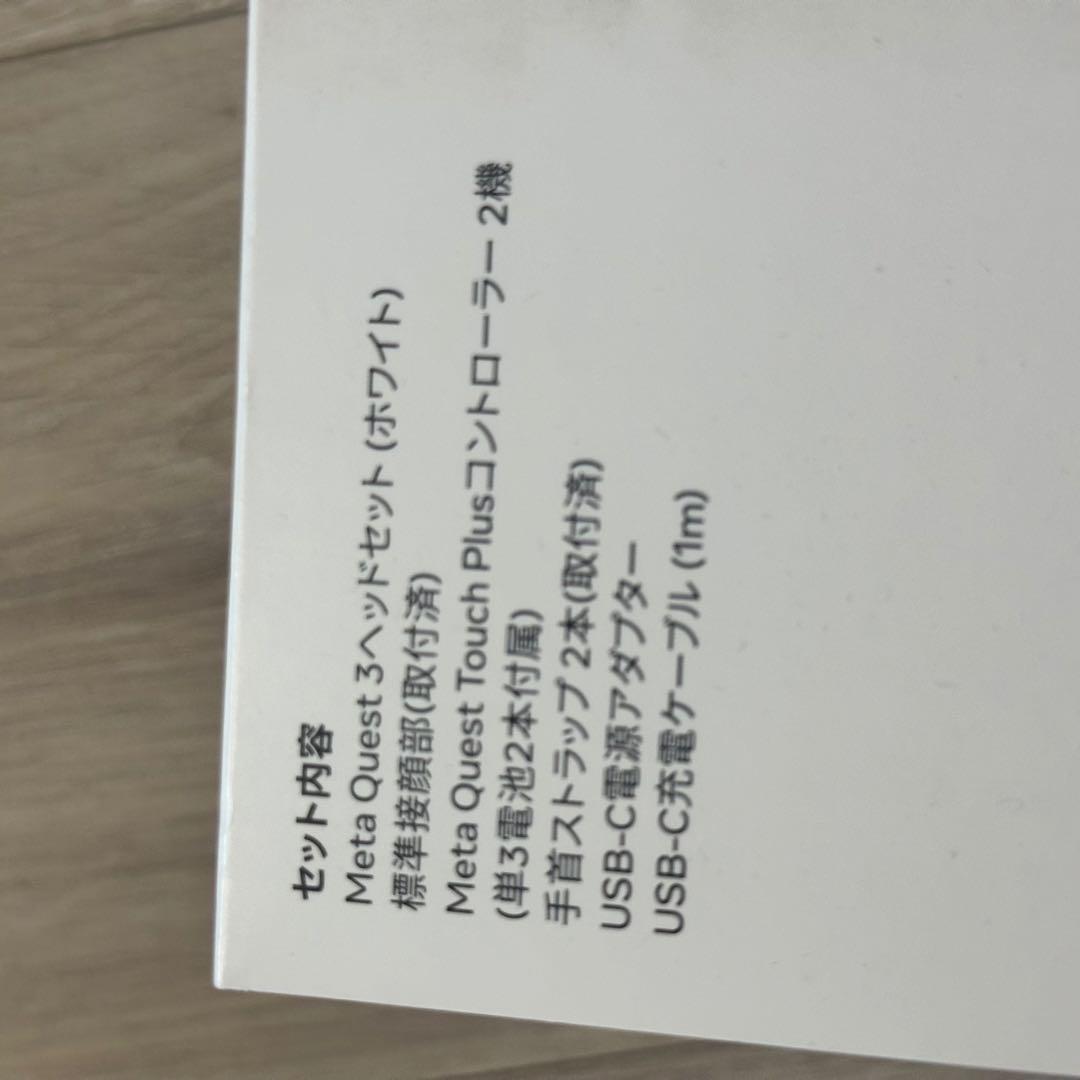 セット内容
Meta Quest 3ヘッドセット (ホワイト)
標準接顔部(取付済)
Meta Quest Touch Plusコントローラー 2機
(単3電池2本付属)
手首ストラップ 2本(取付済)
USB-C電源アダプター
USB-C充電ケーブル (1m)